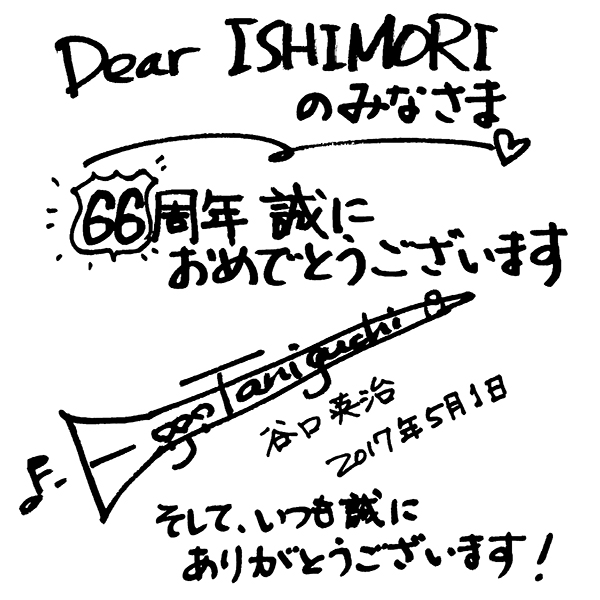 Dear ISHIMORI
のみなさま
66周年 誠に
おめでとうございます
Taniguchi
谷口英治
2017年5月1日
そして、いつも誠に
ありがとうございます!